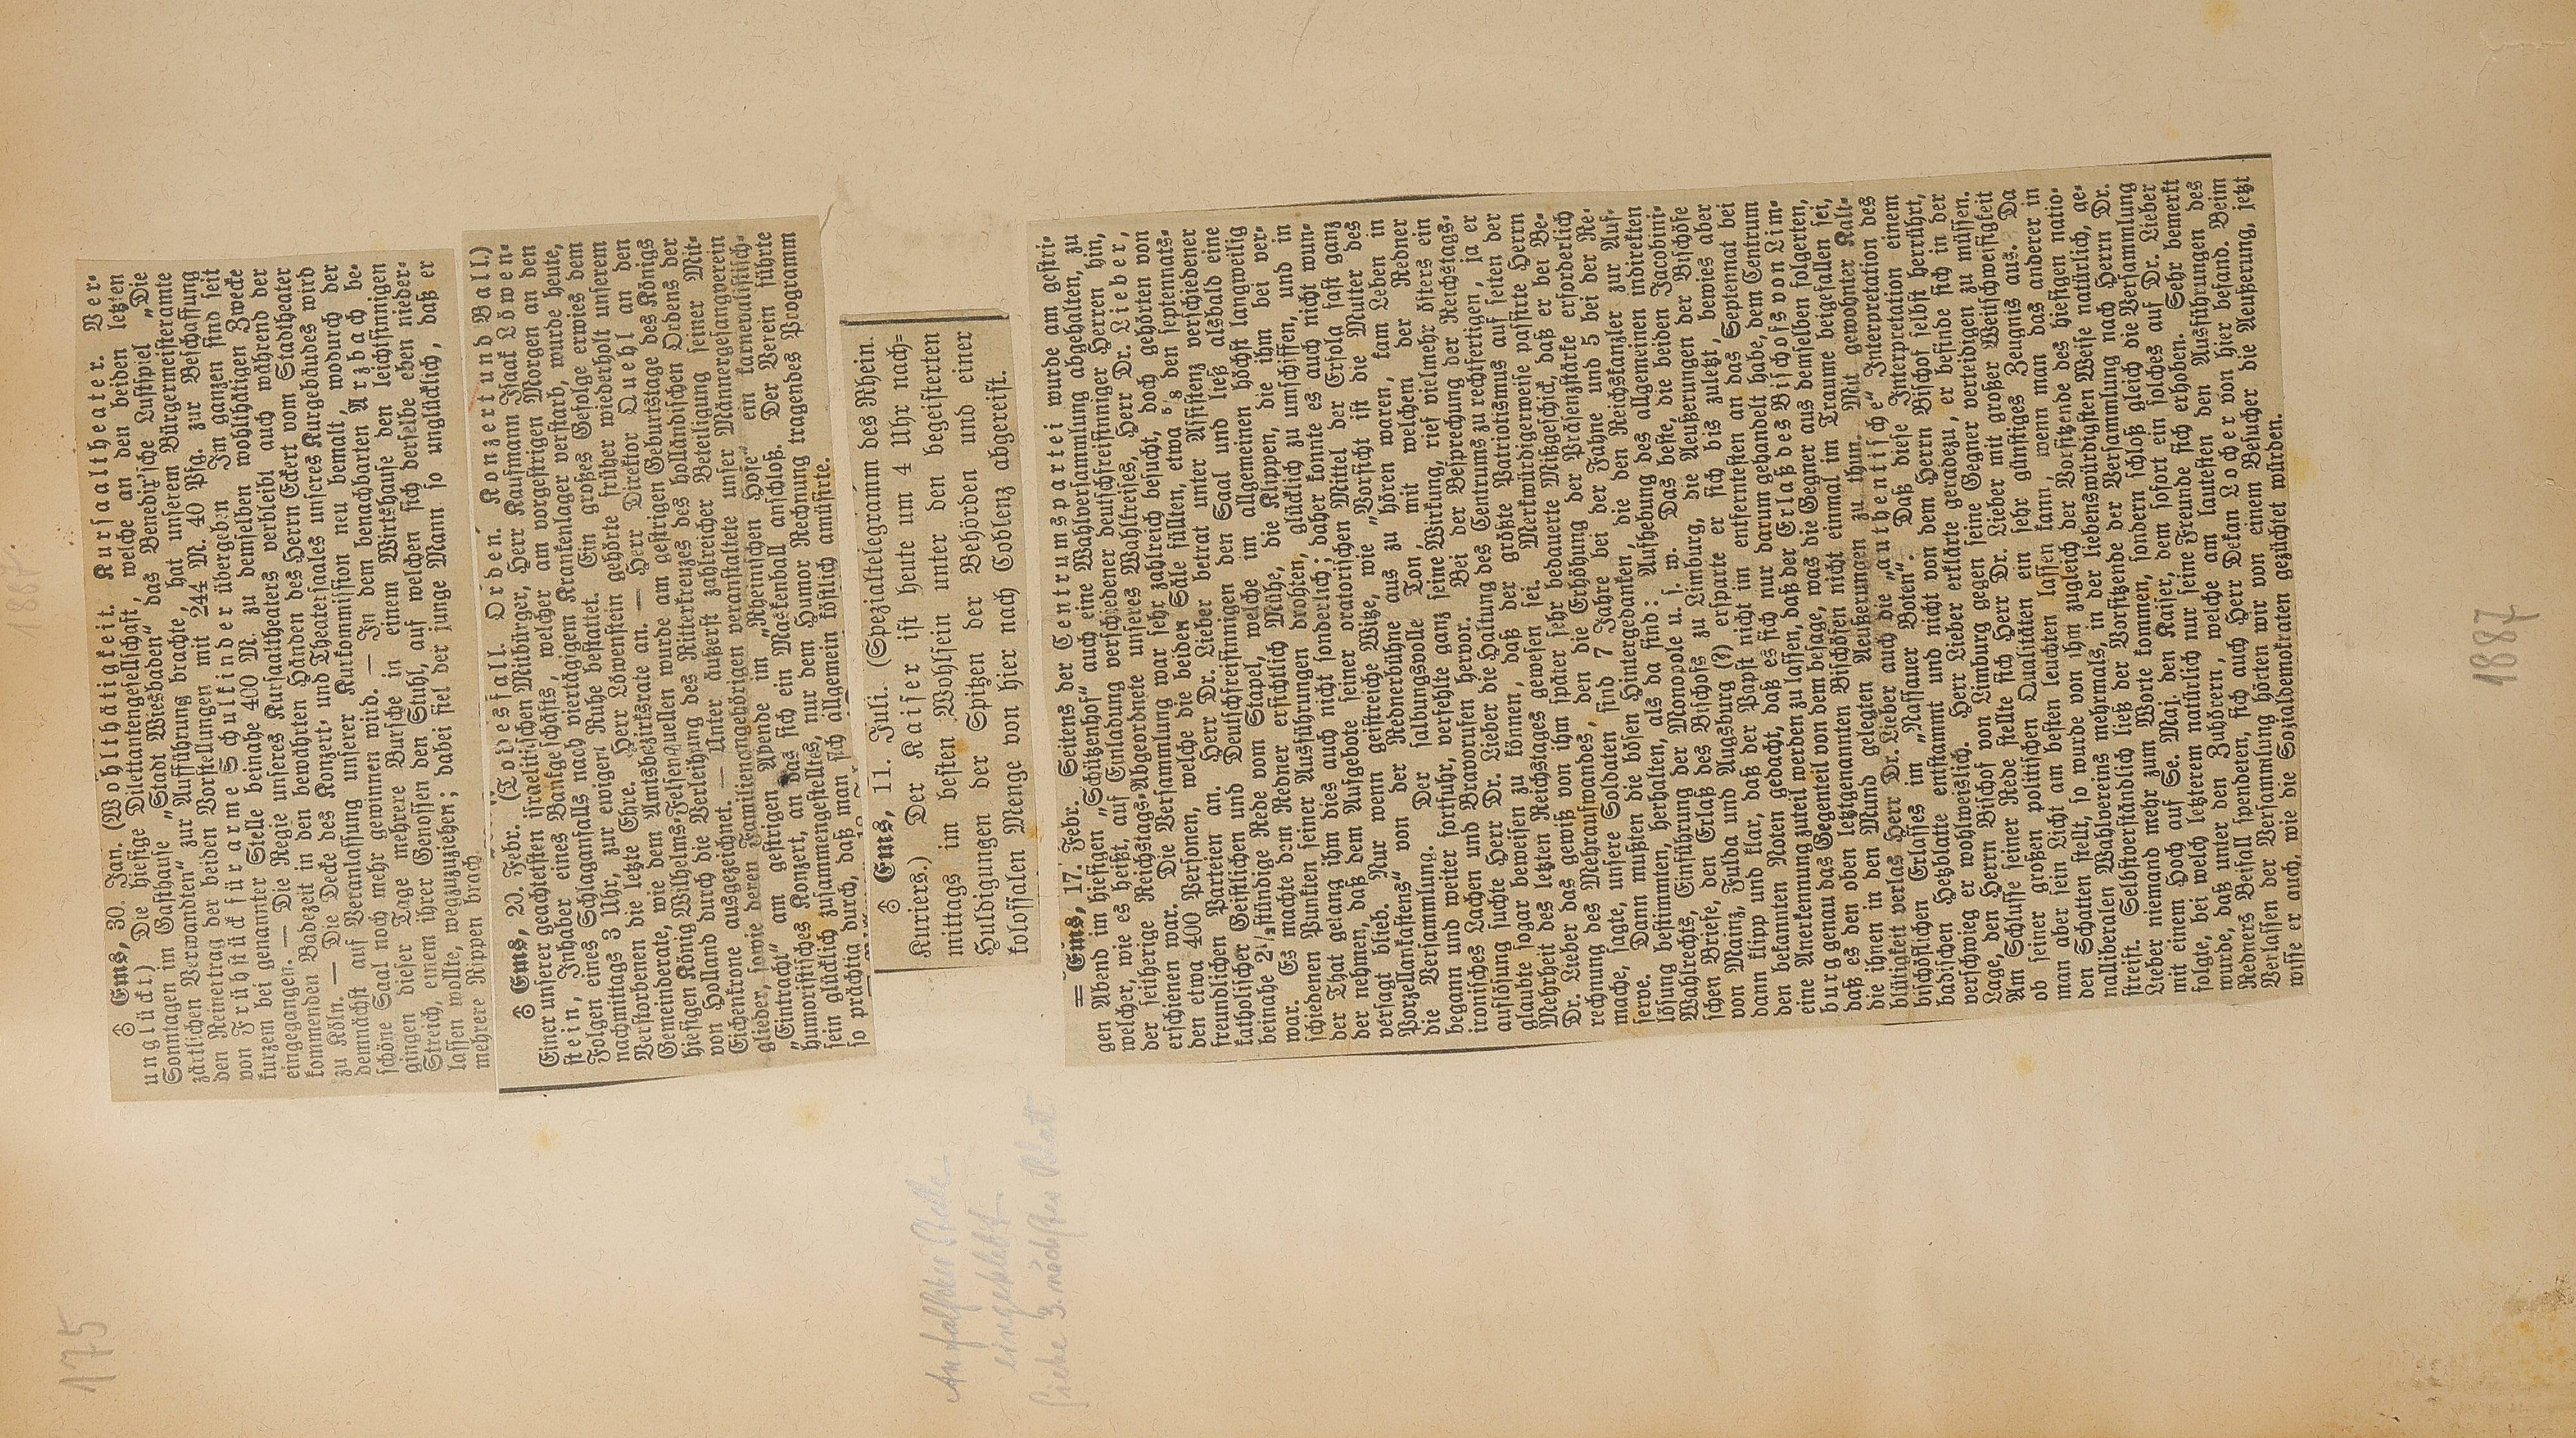 175
1887
♁ Ems, 30. Jan. (Wohlthätigkeit. Kursaaltheater. Ver-
unglückt.) Die hiesige Dilettantengesellschaft, welche an den beiden letzten
Sonntagen im Gasthause „Stadt Wiesbaden“ das Benedix'sche Lustspiel „Die
zärtlichen Verwandten“ zur Aufführung brachte, hat unserem Bürgermeisteramte
den Reinertrag der beiden Vorstellungen mit 244 M. 40 Pfg. zur Beschaffung
von Frühstück für arme Schulkinder übergeben. Im ganzen sind seit
kurzem bei genannter Stelle beinahe 400 M. zu demselben wohlthätigen Zwecke
eingegangen. — Die Regie unseres Kursaaltheaters verbleibt auch während der
kommenden Badezeit in den bewährten Händen des Herrn Eckert vom Stadttheater
zu Köln. — Die Decke des Konzert- und Theatersaales unseres Kurgebäudes wird
demnächst auf Veranlassung unserer Kurkommission neu bemalt, wodurch der
schöne Saal noch mehr gewinnen wird. — In dem benachbarten Arzbach be-
gingen dieser Tage mehrere Bursche in einem Wirtshause den leichtsinnigen
Streich, einem ihrer Genossen den Stuhl, auf welchen sich derselbe eben nieder-
lassen wollte, wegzuziehen; dabei fiel der junge Mann so unglücklich, daß er
mehrere Rippen brach
♁ Ems, 20. Febr. (Todesfall. Orden. Konzert und Ball.)
Einer unserer geachtetsten israelitischen Mitbürger, Herr Kaufmann Isaak Löwen-
stein, Inhaber eines Bankgeschäfts, welcher am vorgestrigen Morgen an den
Folgen eines Schlaganfalls nach viertägigem Krankenlager verstarb, wurde heute,
nachmittags 3 Uhr, zur ewigen Ruhe bestattet. Ein großes Gefolge erwies dem
Verstorbenen die letzte Ehre. Herr Löwenstein gehörte früher wiederholt unserem
Gemeinderate, wie dem Amtsbezirksrate an. — Herr Direktor Quehl an den
hiesigen König Wilhelms-Felsenquellen wurde am gestrigen Geburtstage des Königs
von Holland durch die Verleihung des Ritterkreuzes des holländischen Ordens der
Eichenkrone ausgezeichnet. — Unter äußerst zahlreicher Beteiligung seiner Mit-
glieder, sowie deren Familienangehörigen veranstaltete unser Männergesangverein
„Eintracht“ am gestrigen Abende im „Rheinischen Hofe“ ein karnevalistisch-
humoristisches Konzert, an das sich ein Maskenball anschloß. Der Verein führte
sein glücklich zusammengestelltes, nur dem Humor Rechnung tragendes Programm
so prächtig durch, daß man sich allgemein köstlich amüsirte.
♁ Ems, 11. Juli. (Spezialtelegramm des Rhein.
Kuriers.) Der Kaiser ist heute um 4 Uhr nach-
mittags im besten Wohlsein unter den begeisterten
Huldigungen der Spitzen der Behörden und einer
kolossalen Menge von hier nach Coblenz abgereist.
An falscher Stelle
eingeklebt
siehe 3. nächstes Blatt
= Ems, 17. Febr. Seitens der Centrumspartei wurde am gestri-
gen Abend im hiesigen „Schützenhof“ auch eine Wahlversammlung abgehalten, zu
welcher, wie es heißt, auf Einladung verschiedener deutschfreisinniger Herren hin,
der seitherige Reichstags-Abgeordnete unseres Wahlkreises, Herr Dr. Lieber,
erschienen war. Die Versammlung war sehr zahlreich besucht, doch gehörten von
den etwa 400 Personen, welche die beiden Säle füllten, etwa ⅝ den septennats-
freundlichen Parteien an. Herr Dr. Lieber betrat unter Assistenz verschiedener
katholischer Geistlichen und Deutschfreisinnigen den Saal und ließ alsbald eine
beinahe 2½stündige Rede vom Stapel, welche im allgemeinen höchst langweilig
war. Es machte dem Redner ersichtlich Mühe, die Klippen, die ihm bei ver-
schiedenen Punkten seiner Ausführungen drohten, glücklich zu umschiffen, und in
der That gelang ihm dies auch nicht sonderlich; daher konnte es auch nicht wun-
der nehmen, daß dem Aufgebote seiner oratorischen Mittel der Erfolg fast ganz
versagt blieb. Nur wenn geistreiche Witze, wie „Vorsicht ist die Mutter des
Porzellankastens“ von der Rednerbühne aus zu hören waren, kam Leben in
die Versammlung. Der salbungsvolle Ton, mit welchem der Redner
begann und weiter fortfuhr, verfehlte ganz seine Wirkung, rief vielmehr öfters ein
ironisches Lachen und Bravorufen hervor. Bei der Besprechung der Reichstags-
auflösung suchte Herr Dr. Lieber die Haltung des Centrums zu rechtfertigen, ja er
glaubte sogar beweisen zu können, daß der größte Patriotismus auf seiten der
Mehrheit des letzten Reichstages gewesen sei. Merkwürdigerweise passirte Herrn
Dr. Lieber das gewiß von ihm später sehr bedauerte Mißgeschick, daß er bei Be-
rechnung des Mehraufwandes, den die Erhöhung der Präsenzstärke erforderlich
mache, sagte, unsere Soldaten sind 7 Jahre bei der Fahne und 5 bei der Re-
serve. Dann mußten die bösen Hintergedanken, die den Reichskanzler zur Auf-
lösung bestimmten, herhalten, als da sind: Aufhebung des allgemeinen indirekten
Wahlrechts, Einführung der Monopole u. s. w. Das beste, die beiden Jacobini-
schen Briefe, den Erlaß des Bischofs zu Limburg, die Aeußerungen der Bischöfe
von Mainz, Fulda und Augsburg (?) ersparte er sich bis zuletzt, bewies aber
dann klipp und klar, daß der Papst nicht im entferntesten an das Septennat bei
den bekannten Noten gedacht, daß es sich nur darum gehandelt habe, dem Centrum
eine Anerkennung zuteil werden zu lassen, daß der Erlaß des Bischofs von Lim-
burg genau das Gegenteil von dem besage, was die Gegner aus demselben folgerten,
daß es den oben letztgenannten Bischöfen nicht einmal im Traume beigefallen sei,
die ihnen in den Mund gelegten Aeußerungen zu thun. Mit gewohnter Kalt-
blütigkeit verlas Herr Dr. Lieber auch die „authentische“ Interpretation des
bischöflichen Erlasses im „Nassauer Boten“. Daß diese Interpretation einem
badischen Hetzblatte entstammt und nicht von dem Herrn Bischof selbst herrührt,
verschwieg er wohlweislich. Herr Lieber erklärte geradezu, er befinde sich in der
Lage, den Herrn Bischof von Limburg gegen seine Gegner verteidigen zu müssen.
Am Schlusse seiner Rede stellte sich Herr Dr. Lieber mit großer Weitschweifigkeit
ob seiner großen politischen Qualitäten ein sehr günstiges Zeugnis aus. Da
man aber sein Licht am besten leuchten lassen kann, wenn man das anderer in
den Schatten stellt, so wurde von ihm zugleich der Vorsitzende des hiesigen natio-
nalliberalen Wahlvereins mehrmals, in der liebenswürdigsten Weise natürlich, ge-
streift. Selbstverständlich ließ der Vorsitzende der Versammlung nach Herrn Dr.
Lieber niemand mehr zum Worte kommen, sondern schloß gleich die Versammlung
mit einem Hoch auf Se. Maj. den Kaiser, dem sofort ein solches auf Dr. Lieber
folgte, bei welch letzterem natürlich nur seine Freunde sich erhoben. Sehr bemerkt
wurde, daß unter den Zuhörern, welche am lautesten den Ausführungen des
Redners Beifall spendeten, sich auch Herr Dekan Locher von hier befand. Beim
Verlassen der Versammlung hörten wir von einem Besucher die Aeußerung, jetzt
wisse er auch, wie die Sozialdemokraten gezüchtet würden.
1887